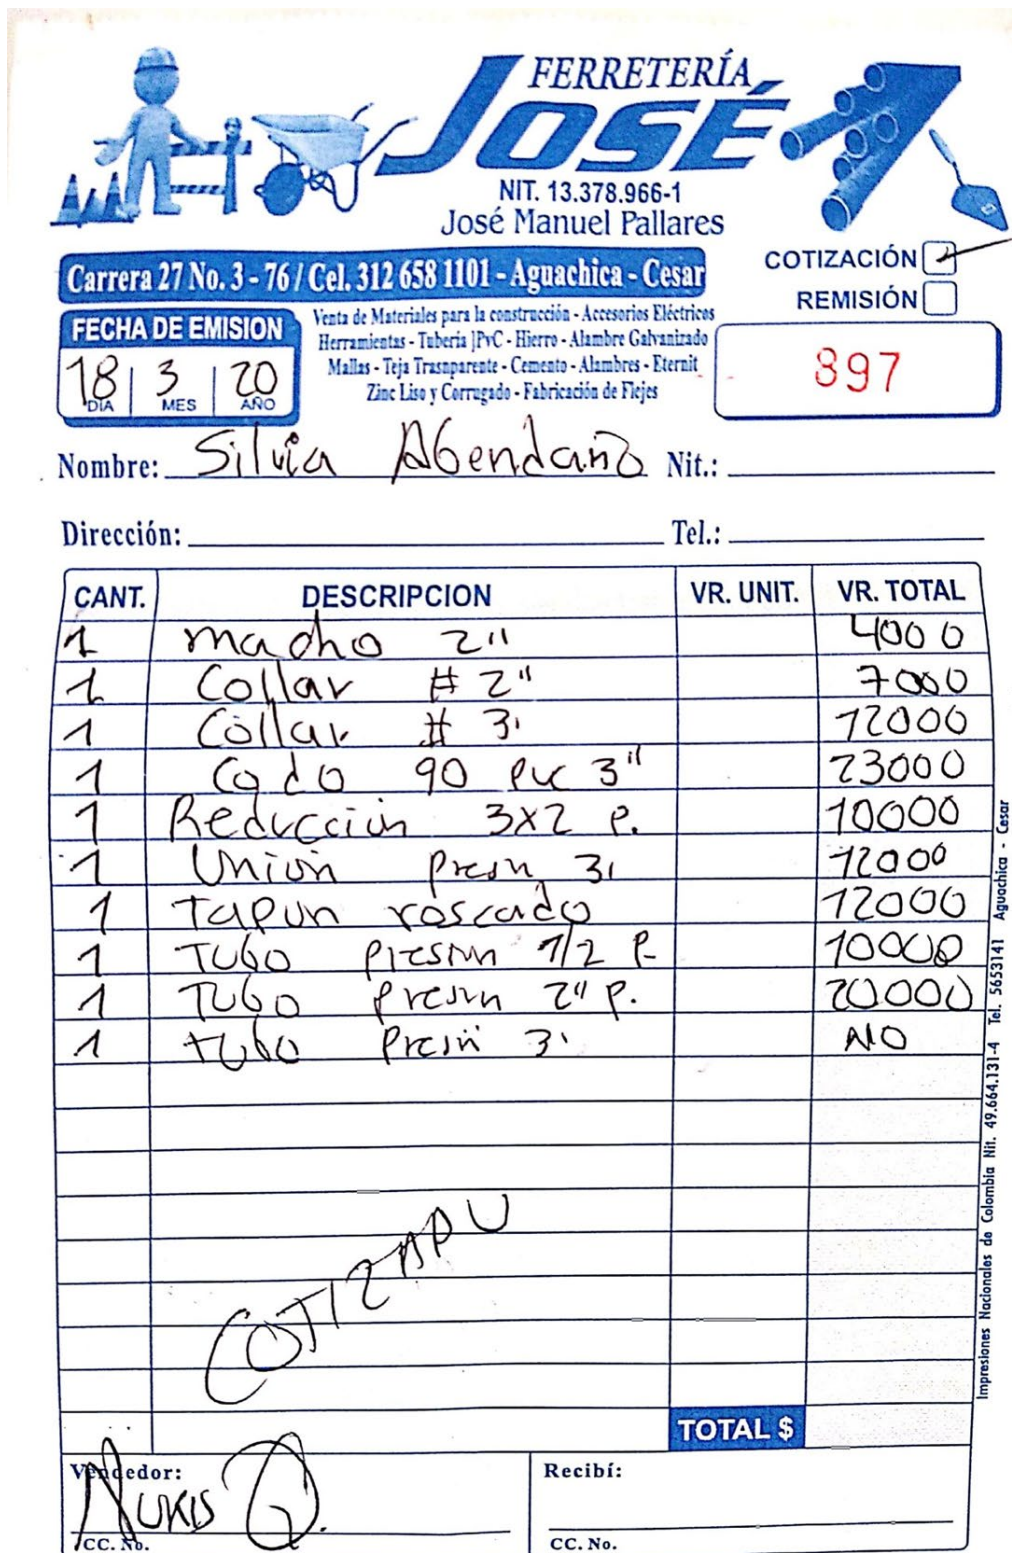 FERRETERÍA
JOSÉ
NIT. 13.378.966-1
José Manuel Pallares
Carrera 27 No. 3 - 76 / Cel. 312 658 1101 - Aguachica - Cesar
COTIZACIÓN
REMISIÓN
FECHA DE EMISION
18 3 20
DIA MES AÑO
Venta de Materiales para la construcción - Accesorios Eléctricos
Herramientas - Tuberia |PvC - Hierro - Alambre Galvanizado
Mallas - Teja Trasnparente - Cemento - Alambres - Eternit
Zinc Liso y Corrugado - Fabricación de Flejes
897
Nombre: Silvia Abendaño Nit.:
Dirección: Tel.:
CANT. DESCRIPCION VR. UNIT. VR. TOTAL
1 macho 2" 4000
1 Collar # 2" 7000
1 Collar # 3' 12000
1 Codo 90 pvc 3" 23000
1 Reducción 3x2 P. 10000
1 Unión Presn 3' 12000
1 Tapun roscado 12000
1 Tubo Presion 1/2 P. 10000
1 Tubo Presn 2" P. 20000
1 tubo Presn 3' NO
COTIZADO
TOTAL $
Vendedor: Recibí:
NURIS Q.
CC. No. CC. No.
Impresiones Nacionales de Colombia Nit. 49.664.131-4 Tel. 5653141 Aguachica - Cesar